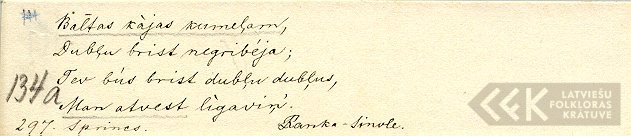 Baltas kàjas kumeļam,
Dubļu brist negribéja;
Tev bús brist dubļu dubļus,
134a
Man atvest lìgaviņ'.
297. Sprincs. Ranka-Sinole.
LATVIEŠU
FOLKLORAS
KRĀTUVE